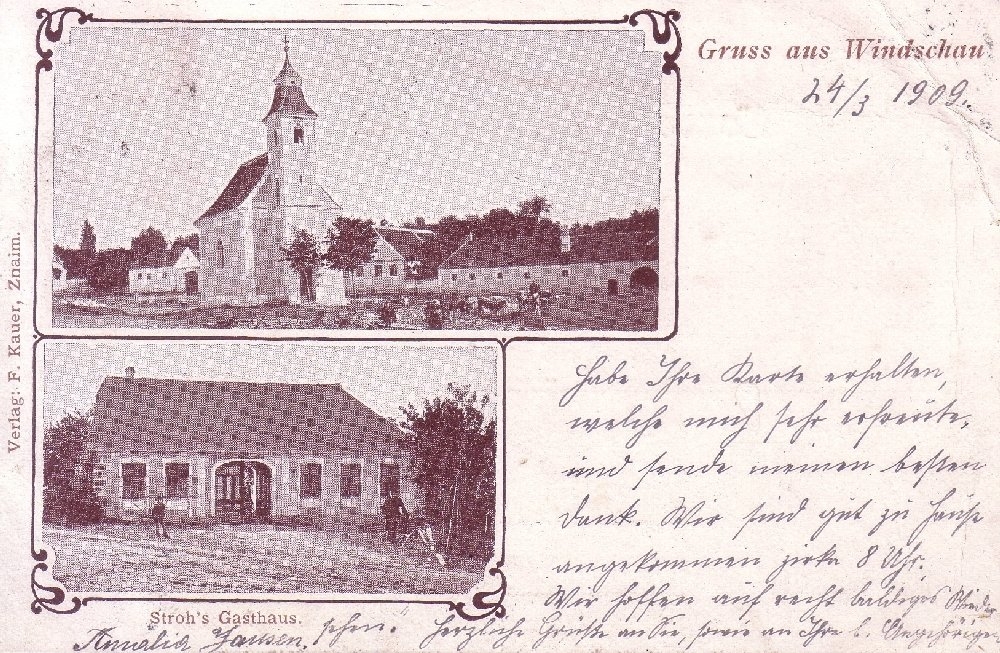 Gruss aus Windschau
24/3 1909.
Verlag: F. Kauer, Znaim.
Habe Ihre Karte erhalten,
welche mich sehr erfreute,
und sende meinen besten
Dank. Wir sind gut zu Hause
angekommen zirka 8 Uhr.
Wir hoffen auf recht baldiges Wieder
sehen. Herzliche Grüße an Sie, sowie an Ihre l. Angehörigen
Stroh's Gasthaus.
Amalia